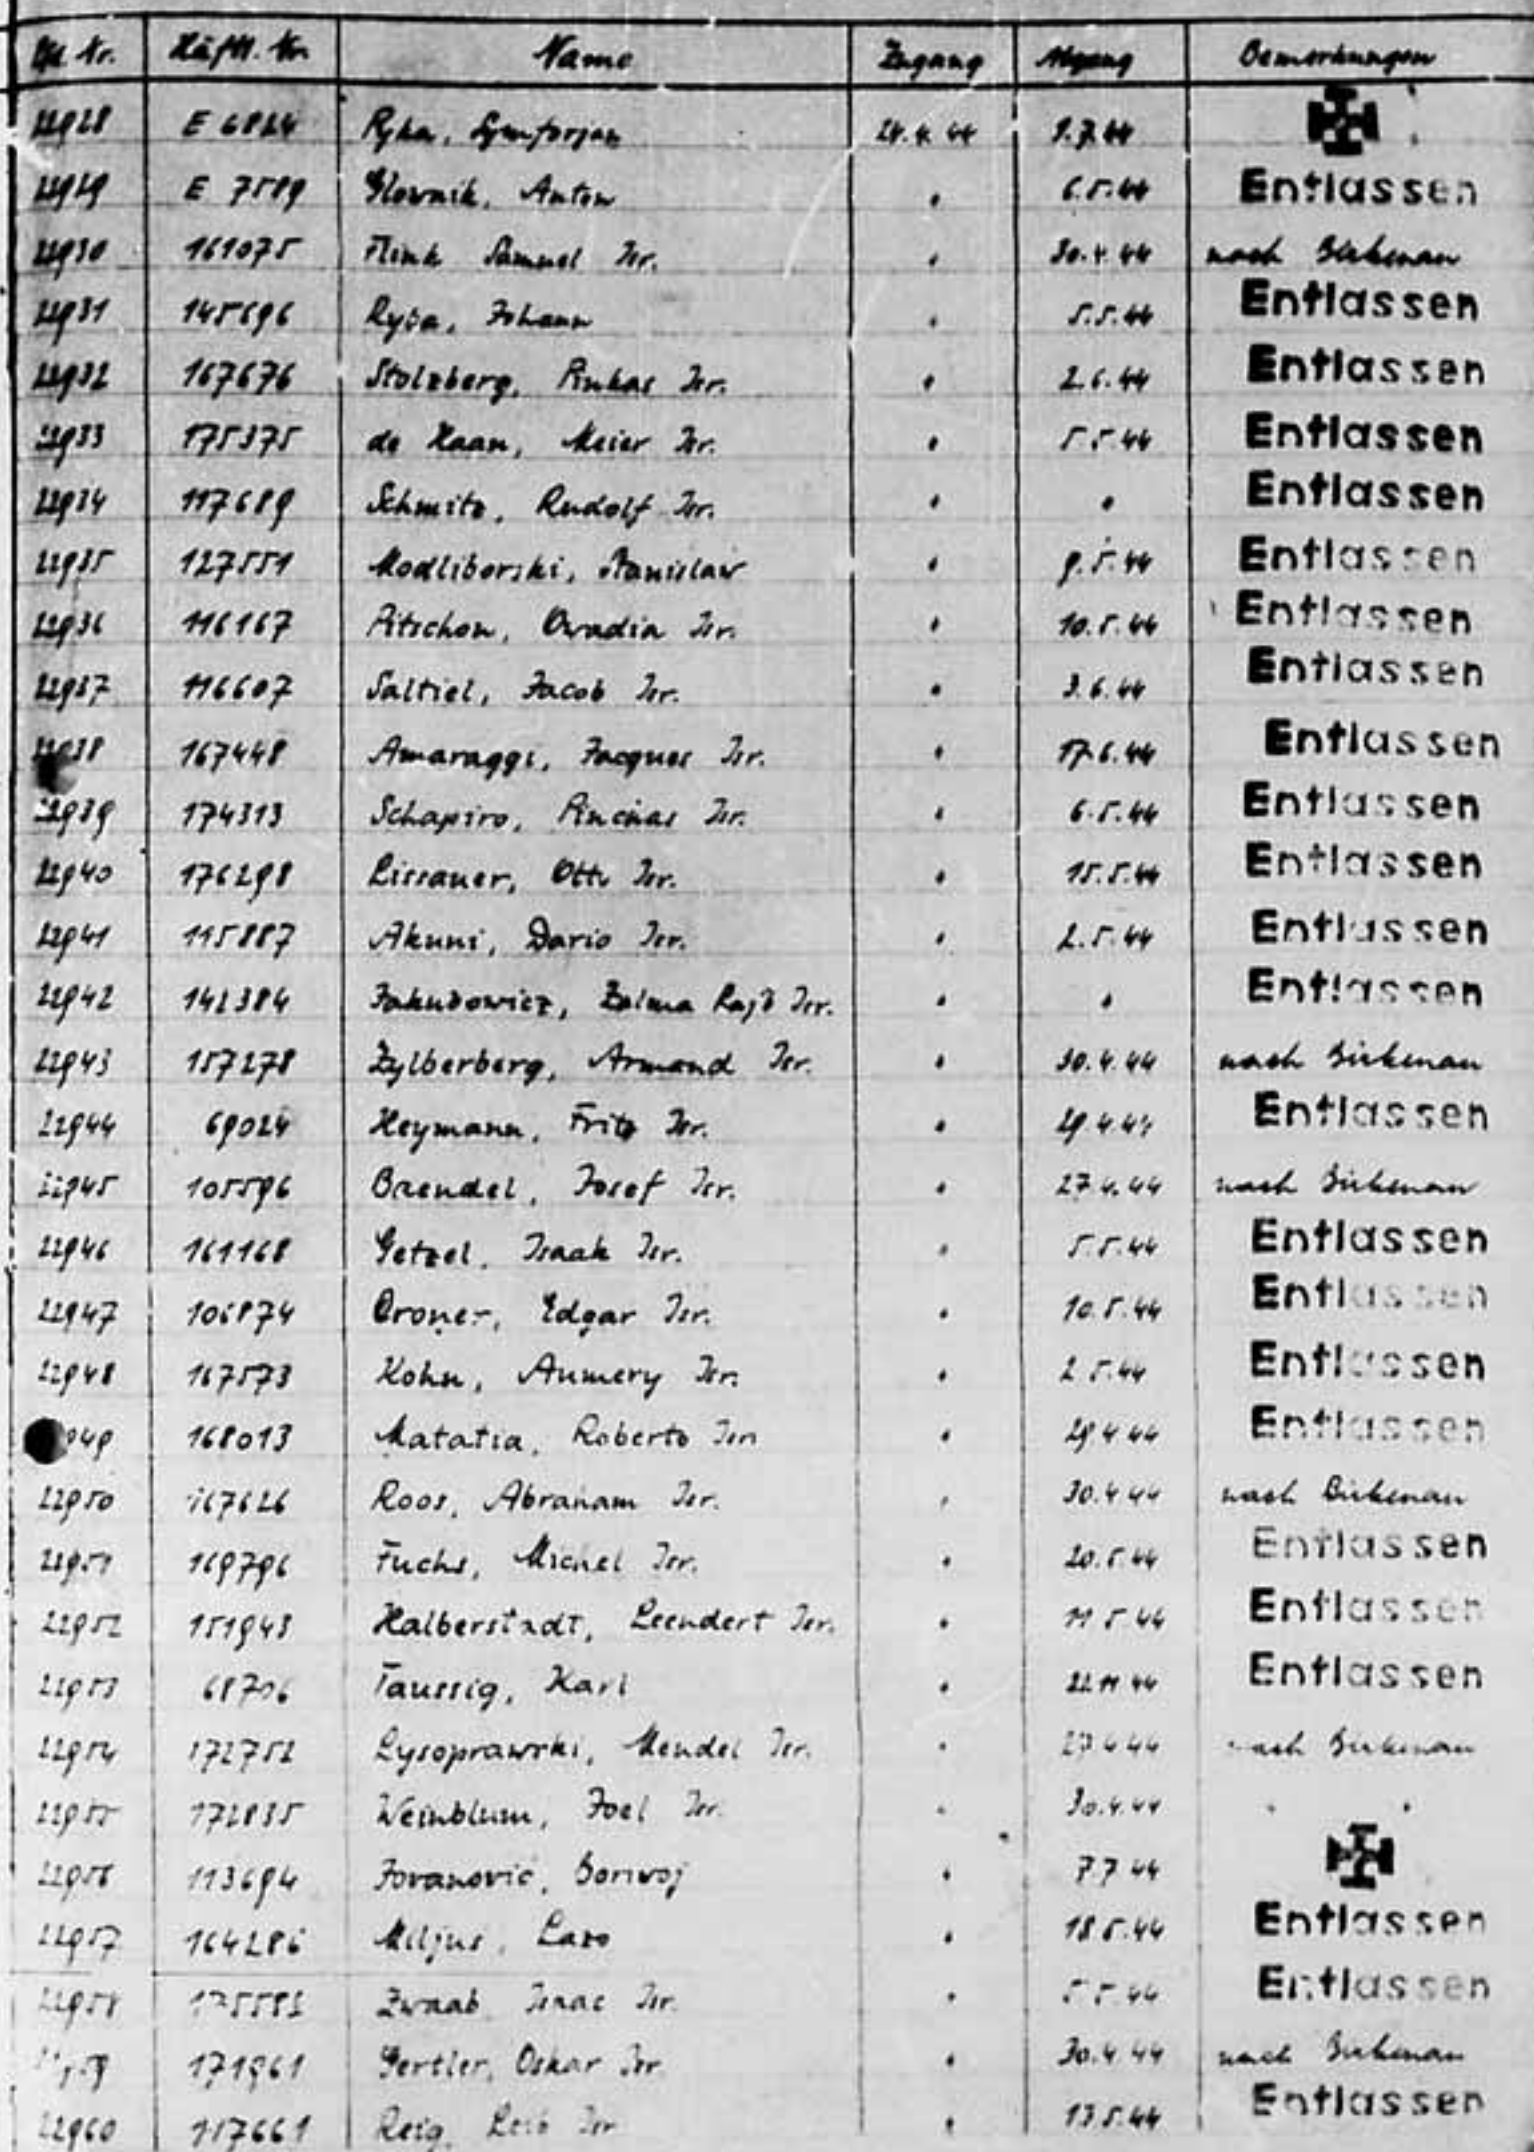 Lfd. Nr. Häftl. Nr. Name Zugang Abgang Bemerkungen
22928 E 6824 Ryka, Symforjan 24.4.44 9.7.44
22929 E 7589 Glownik, Anton " 6.5.44 Entlassen
22930 161075 Flink Samuel Isr. " 30.4.44 nach Birkenau
22931 145696 Johann " 5.5.44 Entlassen
22932 167676 Stolzberg, Pinkas Isr. " 2.6.44 Entlassen
22933 175375 de Haan, Meier Isr. " 5.5.44 Entlassen
22934 117689 Schmitz, Rudolf Isr. " " Entlassen
22935 127551 Modliborski, Stanislaw " 9.5.44 Entlassen
22936 116167 Pitschon, Owadia Isr. " 10.5.44 Entlassen
22937 116607 Saltiel, Jacob Isr. " 3.6.44 Entlassen
22938 167448 Amaraggi, Jacques Isr. " 17.6.44 Entlassen
22939 174313 Schapiro, Pinchas Isr. " 6.5.44 Entlassen
22940 176298 Lissauer, Otto Isr. " 15.5.44 Entlassen
22941 115887 Akuni, Dario Isr. " 2.5.44 Entlassen
22942 142384 Jakubowicz, Zalma Rajb Isr. " " Entlassen
22943 157278 Zylberberg, Armand Isr. " 30.4.44 nach Birkenau
22944 69024 Heymann, Fritz Isr. " 29.4.44 Entlassen
22945 105596 Baendel, Josef Isr. " 27.4.44 nach Birkenau
22946 161168 Getzel, Isaak Isr. " 5.5.44 Entlassen
22947 106874 Croner, Edgar Isr. " 10.5.44 Entlassen
22948 167573 Kohn, Aumery Isr. " 2.5.44 Entlassen
949 168013 Matatia, Roberto Isr. " 29.4.44 Entlassen
22950 167626 Roos, Abraham Isr. " 30.4.44 nach Birkenau
22951 169796 Fuchs, Michel Isr. " 20.5.44 Entlassen
22952 151943 Halberstadt, Leendert Isr. " 11.5.44 Entlassen
22953 68706 Taussig, Karl " 22.11.44 Entlassen
22954 172752 Lysoprawski, Mendel Isr. " 44 nach Birkenau
22955 172835 Weinblum, Joel Isr. " 30.4.44 " "
22956 113694 Jovanovic, Boriwoj " 7.7.44
22957 164286 Miljus, Lazo " 18.5.44 Entlassen
22958 175582 Zwaab Isaac Isr. " 5.5.44 Entlassen
59 171961 Gertler, Oskar Isr. " 30.4.44 nach Birkenau
22960 157661 Reig, Leib Isr. " 13.5.44 Entlassen